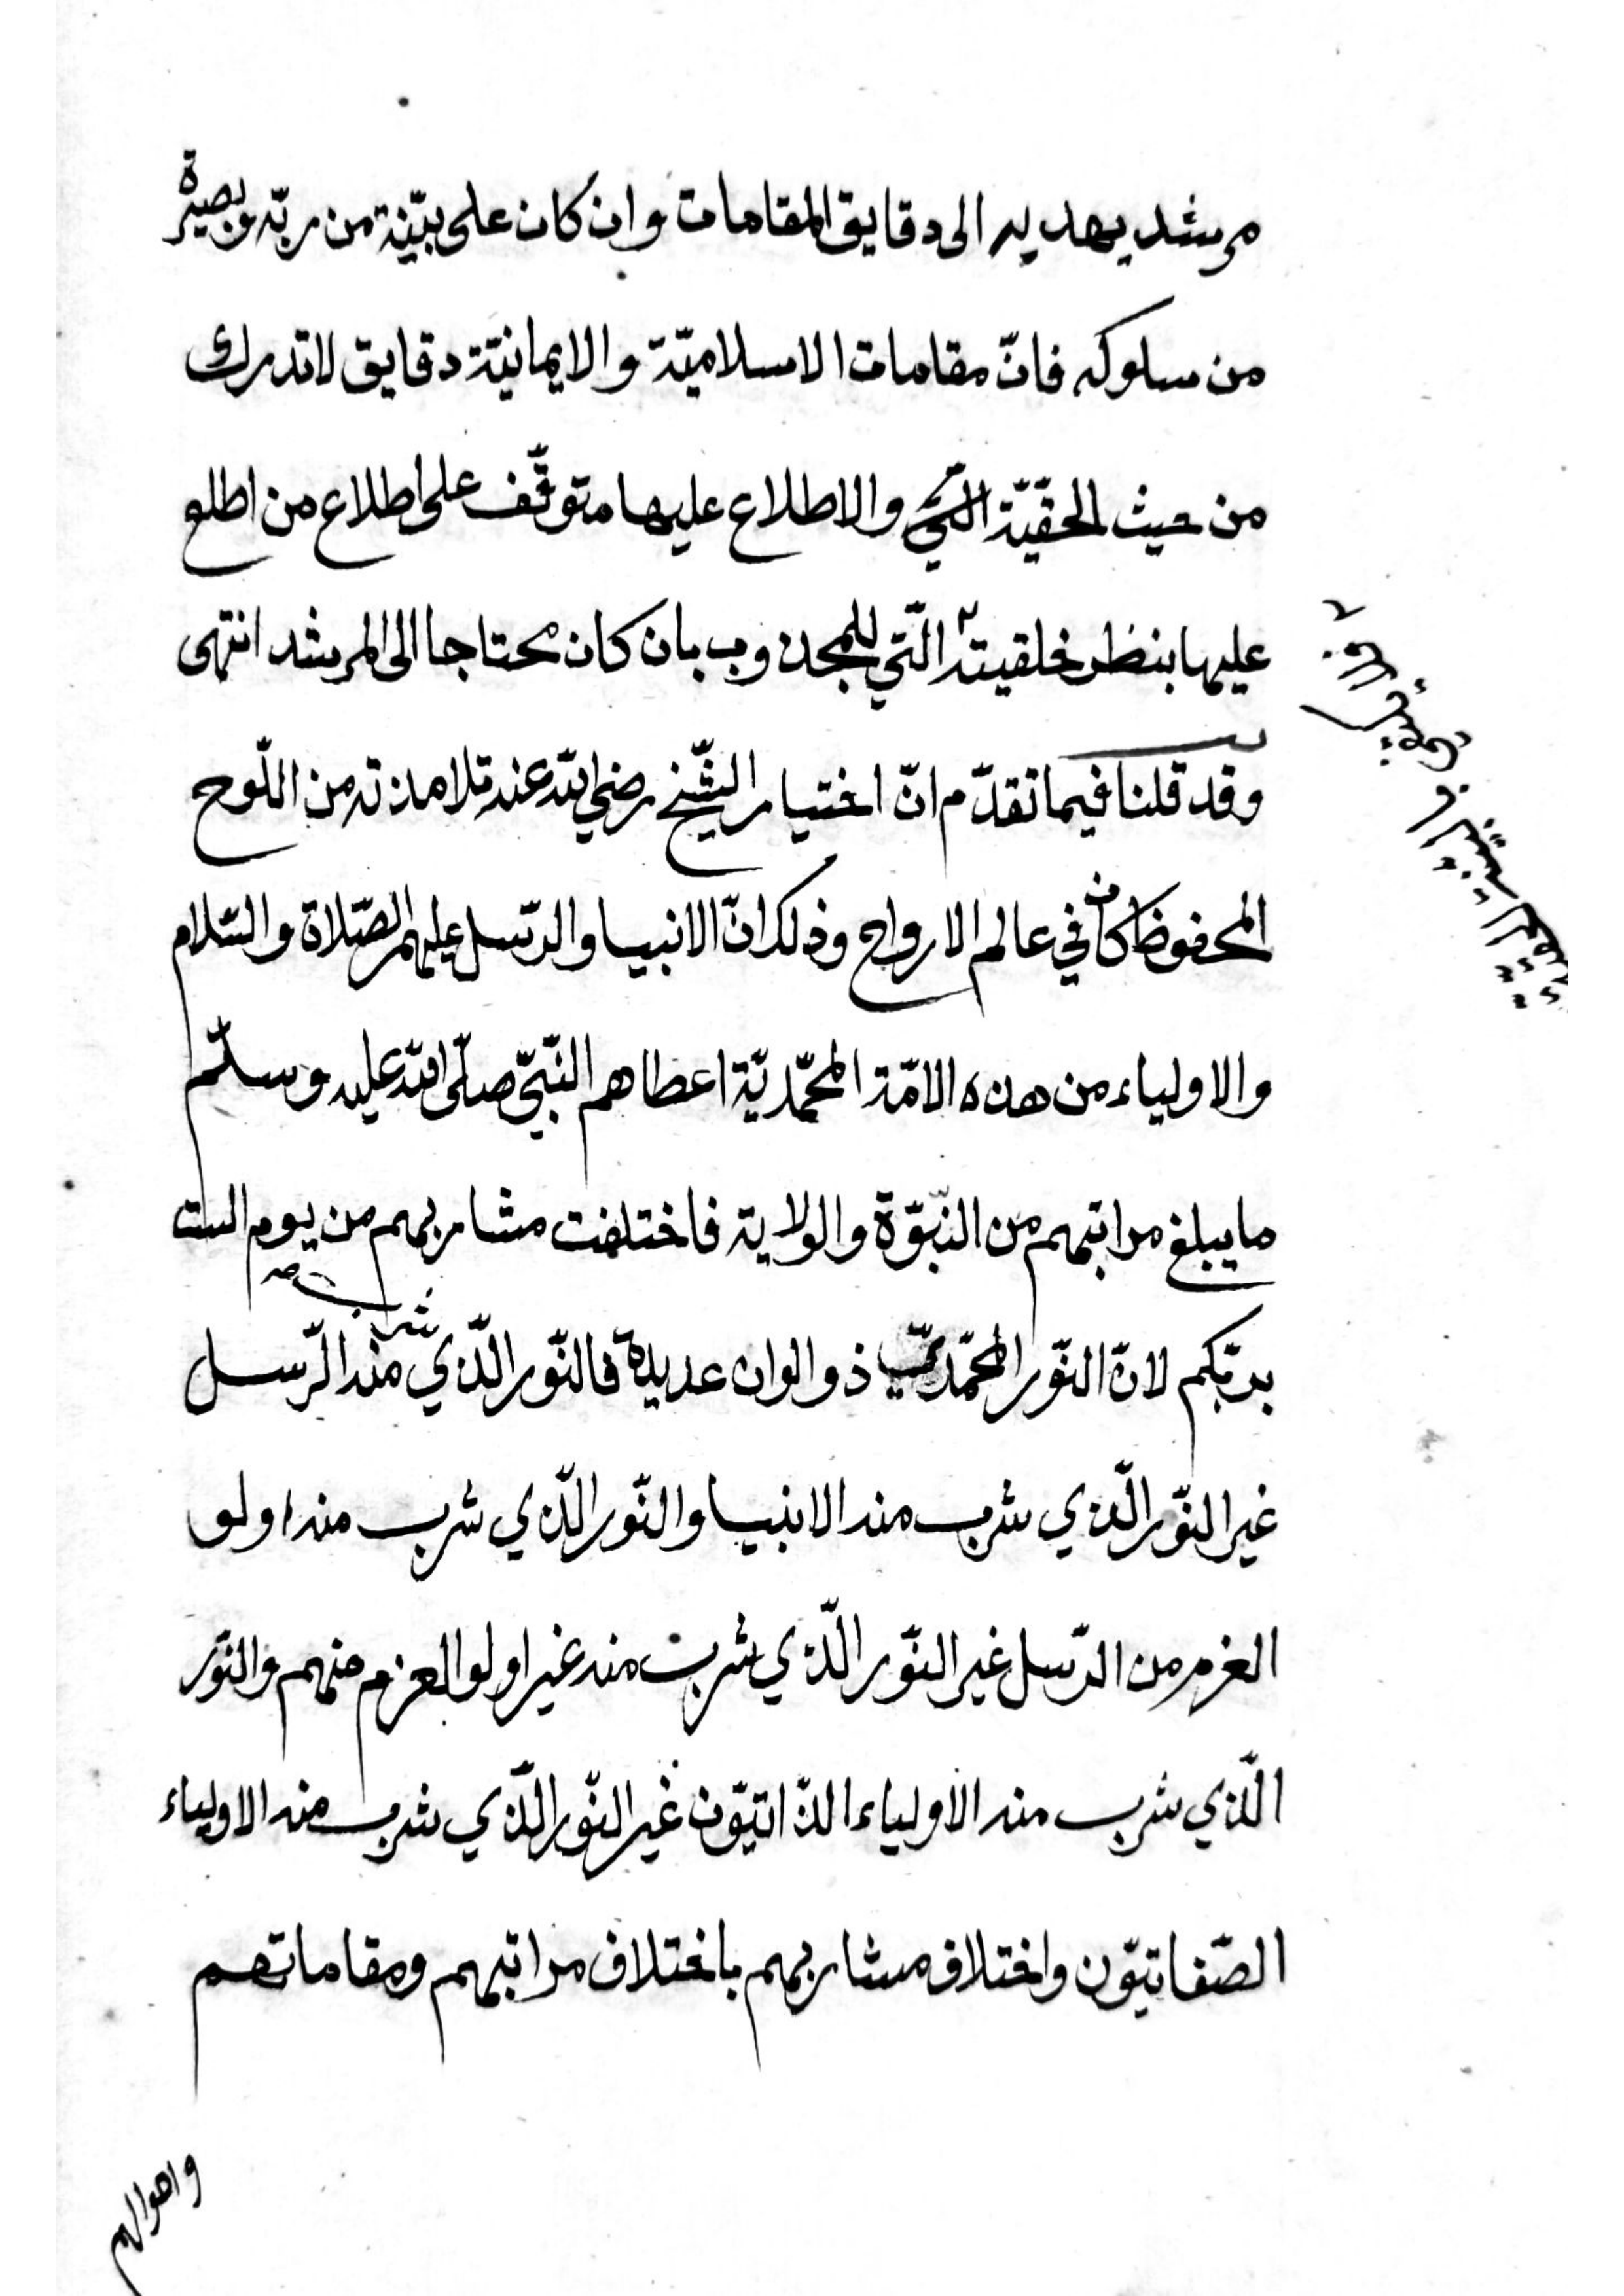 مرشد يهديه الى دقايق المقامات وان كان على بيّنة من ربّه وبصيرة
من سلوكه فانّ مقامات الاسلاميّة والايمانيّة دقايق لا تدرك
من حيث الحقّيّة والاطلاع عليها متوقّف على اطلاع من اطلع
عليها بنظر خلقيته الّتي للمجذوب بان كان محتاجا الى المرشد انتهى
وقد قلنا فيما تقدّم انّ اختيار الشّيخ رضي الله عنه تلامذته من اللّوح
المحفوظ كان في عالم الارواح وذلك انّ الانبيا والرّسل عليهم الصّلاة والسّلام
والاولياء من هذه الامّة المحمّديّة اعطاهم النّبيّ صلّى الله عليه وسلّم
ما يبلغ مراتبهم من النّبوّة والولاية فاختلفت مشاربهم من يوم الست
بربّكم لانّ النّور المحمّديّ ذو الوان عديدة فالنّور الّذي شرب منه الرّسل
غير النّور الّذي شرب منه الانبيا والنّور الّذي شرب منه اولو
العزم من الرّسل غير النّور الّذي شرب منه غير اولو العزم منهم والنّور
الّذي شرب منه الاولياء الذّاتيّون غير النّور الّذي شرب منه الاولياء
الصّفاتيّون واختلاف مشاربهم باختلاف مراتبهم ومقاماتهم
واحوالهم